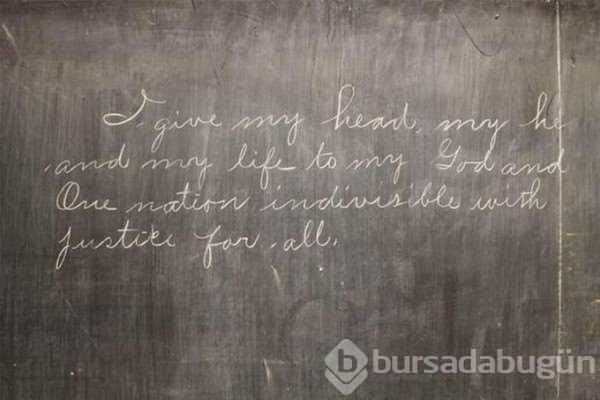 I give my head, my he
and my life to my God and
One nation indivisible with
justice for all.
bursadabugün